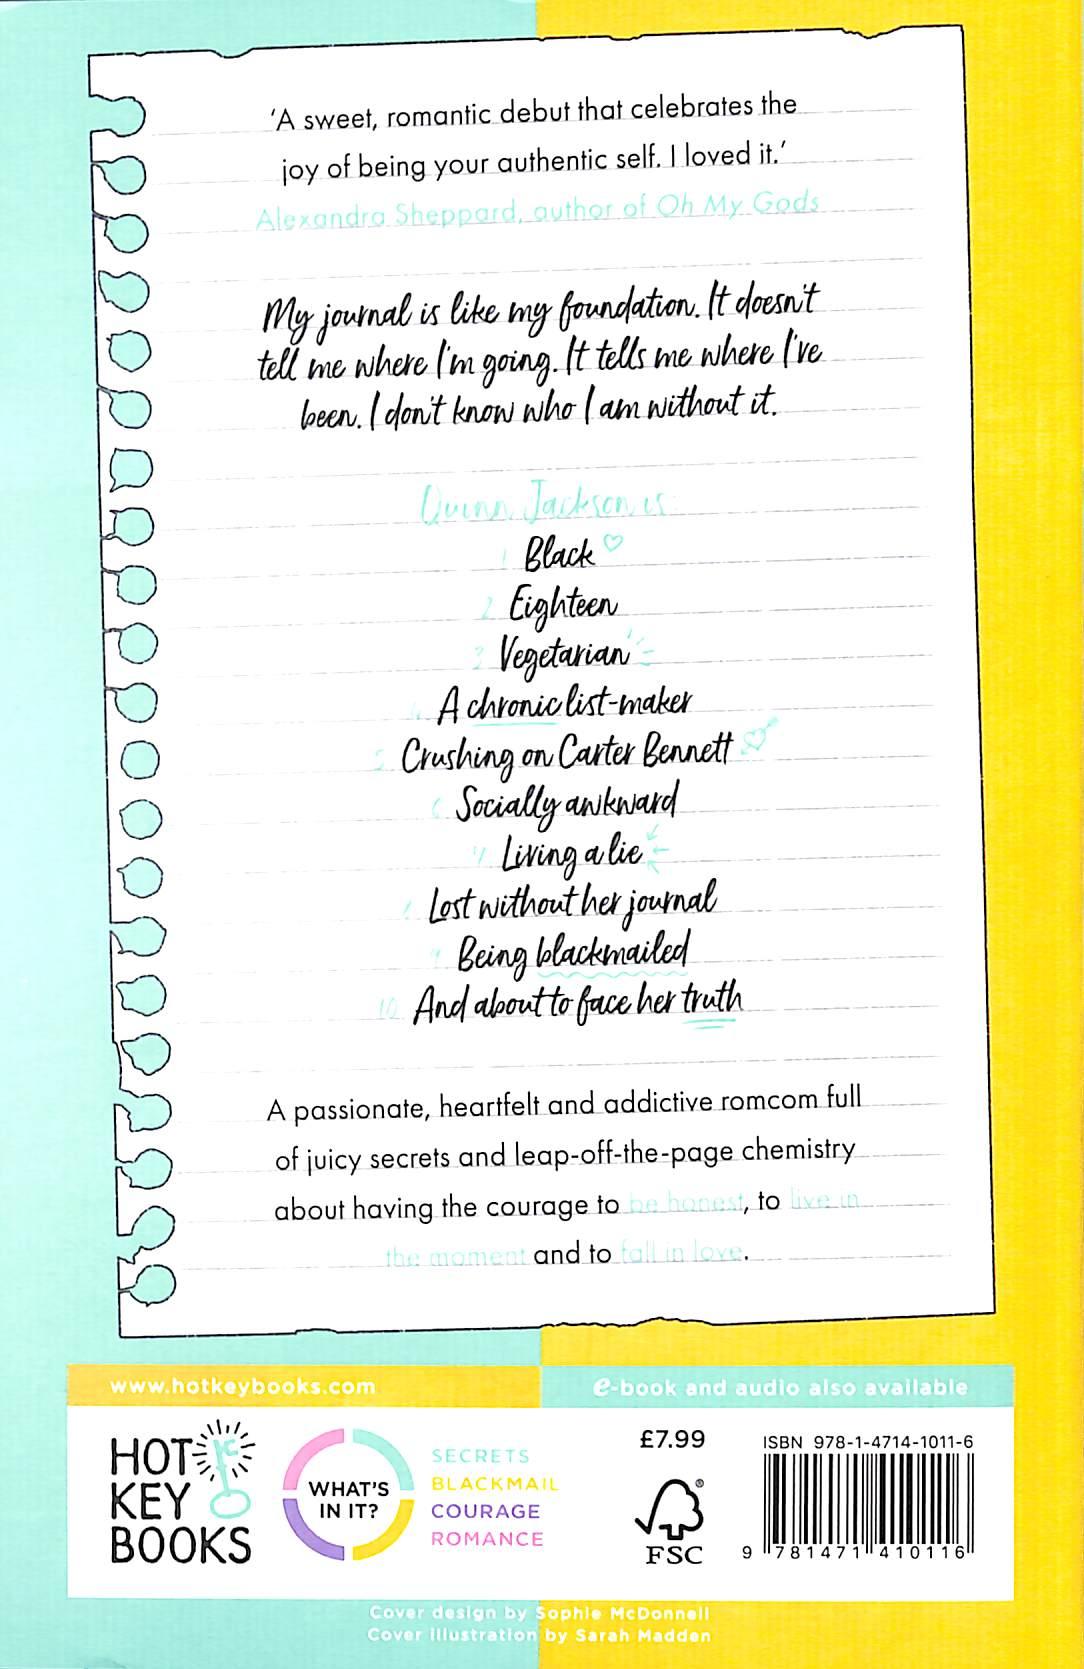 ‘A sweet, romantic debut that celebrates the
joy of being your authentic self. I loved it.’
Alexandra Sheppard, author of Oh My Gods
My journal is like my foundation. It doesn't
tell me where I'm going. It tells me where I've
been. I don't know who I am without it.
Quinn Jackson is:
1. Black
2. Eighteen
3. Vegetarian
4. A chronic list-maker
5. Crushing on Carter Bennett
6. Socially awkward
7. Living a lie
8. Lost without her journal
9. Being blackmailed
10. And about to face her truth
A passionate, heartfelt and addictive romcom full
of juicy secrets and leap-off-the-page chemistry
about having the courage to be honest, to live in
the moment and to fall in love.
www.hotkeybooks.com
e-book and audio also available
HOT
KEY
BOOKS
WHAT'S
IN IT?
SECRETS
BLACKMAIL
COURAGE
ROMANCE
£7.99
FSC
®
ISBN 978-1-4714-1011-6
9 781471 410116
Cover design by Sophie McDonnell
Cover illustration by Sarah Madden